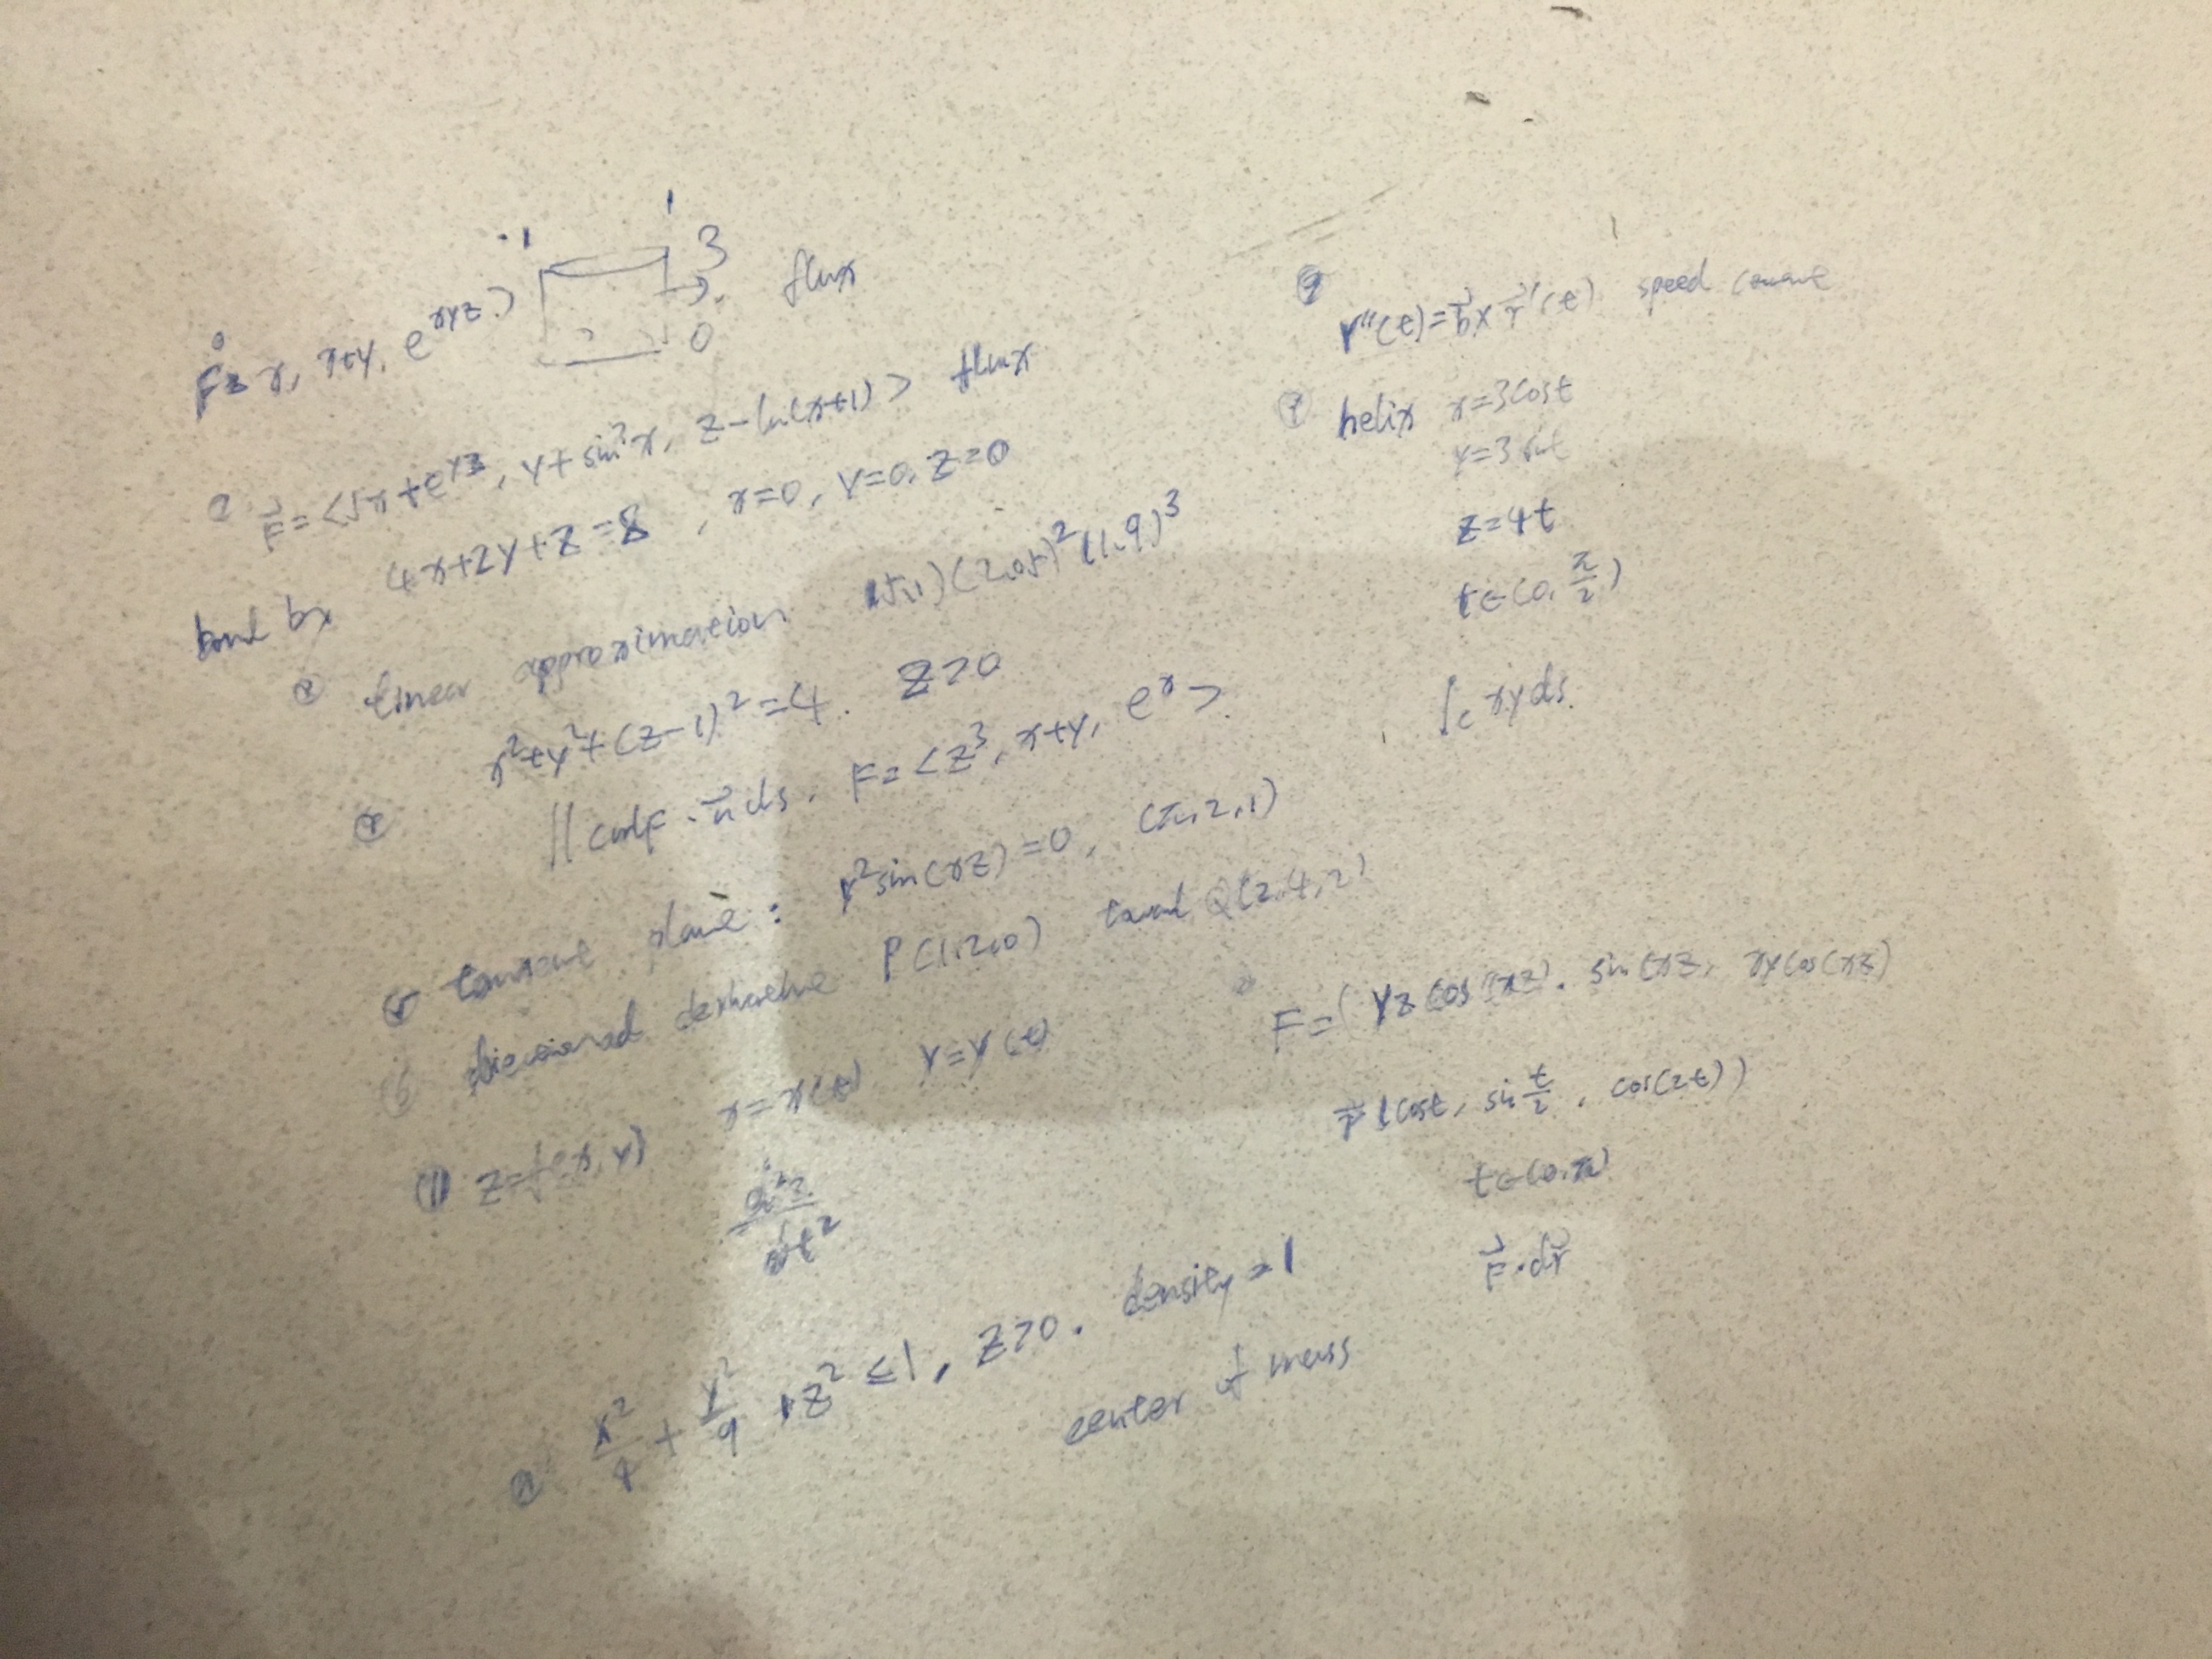 -1 1
3
0
F= x, x+y, e^{xyz}> flux
F⃗ = <5x+e^{yz}, y+sin²x, z-ln(x+1)> flux
4x+2y+z=8, x=0, y=0, z=0
linear approximation (5.1)(2.05)²(1.9)³
x²+y²+(z-1)²=4. z>0
∬ curlF·n⃗ds. F=<z³, x+y, e^x>
plane: y²sin(xz)=0, (π,2,1)
P(1,2,0) Q(2,4,2)
⑪ z=f(x,y) x=x(t) y=y(t)
d²z/dt²
x²/4 + y²/9 + z² ≤ 1, z>0. density=1
center of mass
⑨ r''(t)=b⃗×r⃗'(t) speed
helix x=3cost
y=3sint
z=4t
t∈(0, π/2)
∫_c xyds.
F=(yz cos(xz), sin(xz, xycos(xz)
r⃗(cost, sin t/2, cos(2t))
t∈(0,π)
F⃗·dr⃗